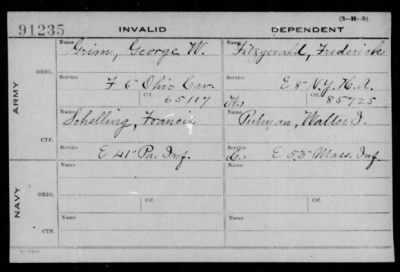 (3-H-5)
91235 INVALID DEPENDENT
Name Name
Grim, George W. Fitzgerald, Frederick
ORIG.
Service Service
F 6 Ohio Cav. E 8 N.Y.H.A.
Ctf. Ctf.
65117 85725
ARMY
Name Name
Schelling, Francis Putman, Walter I.
CTF.
Service Service
E 41 Pa. Inf. E 55 Mass. Inf.
Name Name
ORIG.
Service Ctf. Service Ctf.
NAVY
Name Name
CTF.
Service Service